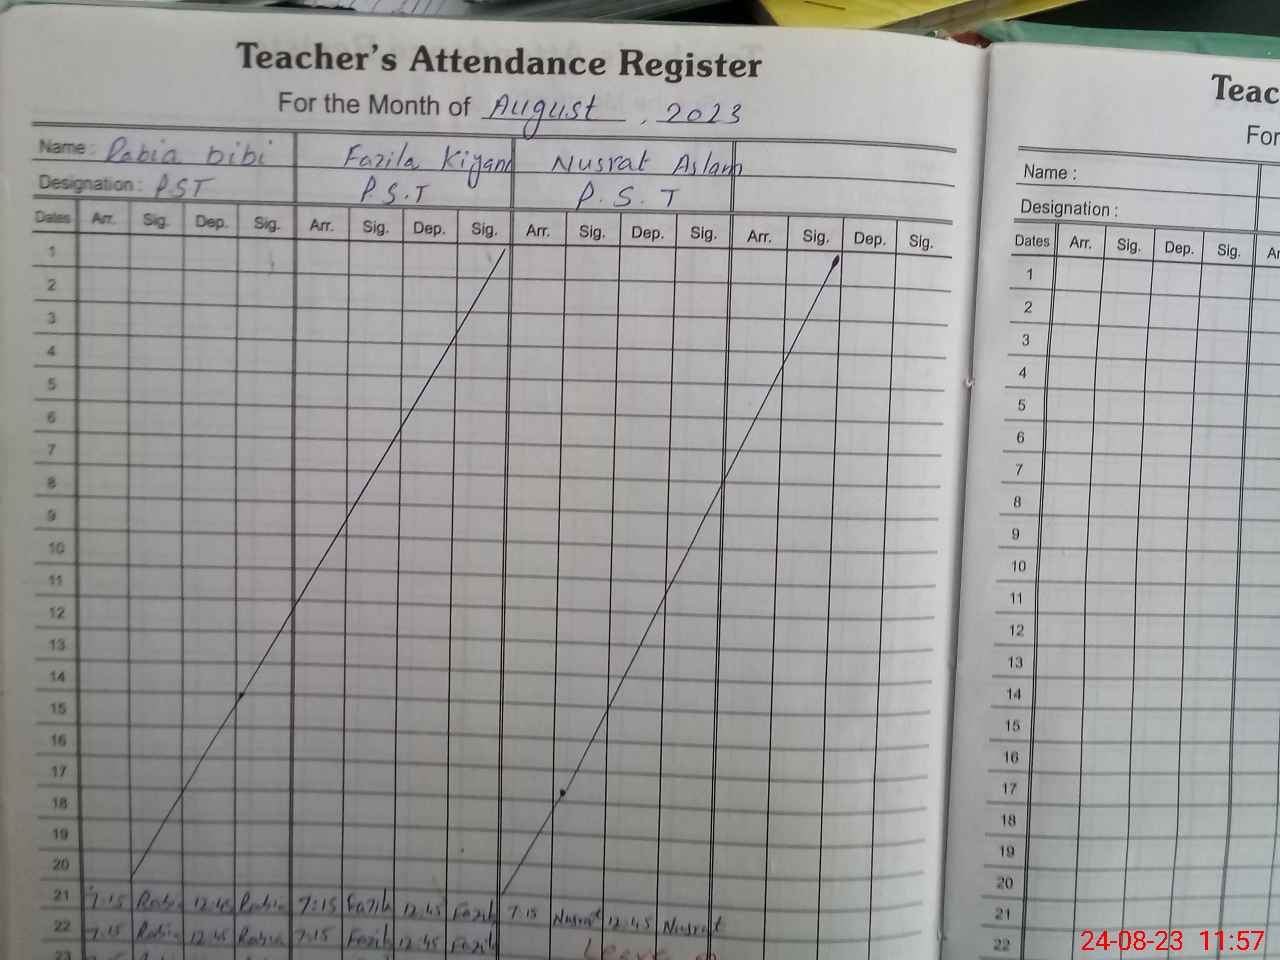 Teacher's Attendance Register
For the Month of August, 2023
Name: Rabia bibi Fazila Kiyani Nusrat Aslam
Designation: PST P.S.T P.S.T
Dates Arr. Sig. Dep. Sig. Arr. Sig. Dep. Sig. Arr. Sig. Dep. Sig. Arr. Sig. Dep. Sig.
1
2
3
4
5
6
7
8
9
10
11
12
13
14
15
16
17
18
19
20
21 7:15 Rabia 12:45 Rabia 7:15 Fazila 12:45 Fazila 7:15 Nusrat 12:45 Nusrat
22 7:15 Rabia 12:45 Rabia 7:15 Fazila 12:45 Fazila Leave
23
Teac
For
Name :
Designation :
Dates Arr. Sig. Dep. Sig. Ar
1
2
3
4
5
6
7
8
9
10
11
12
13
14
15
16
17
18
19
20
21
22
24-08-23 11:57